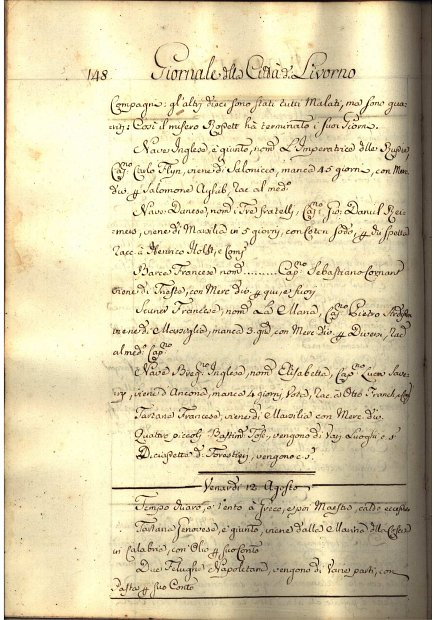 148 Giornale della Città di Livorno
Compagni: gl'altri dieci sono stati tutti Malati, ma sono gua-
riti: Così il misero Rossett hà terminato i suoi Giorni.
Nave Inglese, è giunto, nomta L'Imperatrice delle Russie,
Capno Carlo Flyn, viene di Salonicco, manca 45 giorni, con Merc
div. Salomone Aghib, Rac. al medo
Nave Danese, nomta i Tre fratelli, Capno Gio: Daniel
viene di Marsilia in 5 giorni, con
Racc. à Henrico e Compi
Barca Francese nomta ......... Capno Sebastiano
viene di Trieste, con Merc div. qui, e fuori
Francese, nomta La Maria, Capno Pietro
viene di Marsiglia, manca 3 gni con Merc div. Diversi, Racc
al medo Capno
Nave Inglese, nomta Elisabetta, Capno Lucas
viene d'Ancona, manca 4 giorni, Vota, Rac. a Otto Franck, e Compi
Tartana Francese, viene di Marsilia con Merc. div.
Quattro piccoli Bastimti Tosc. vengono di Varj Luoghi e sa
Diciasette di Forestieri, vengono e sa
Venardi 12 Agosto
Tempo chiaro, e Vento à Greco, e poi Maestro, caldo
Tartana Genovese, è giunto, viene dalla Marina della Costa
in Calabria, con Olio suo Conto
Due Felughe Napoletane, vengono di Varie parti, con
Pasta suo Conto